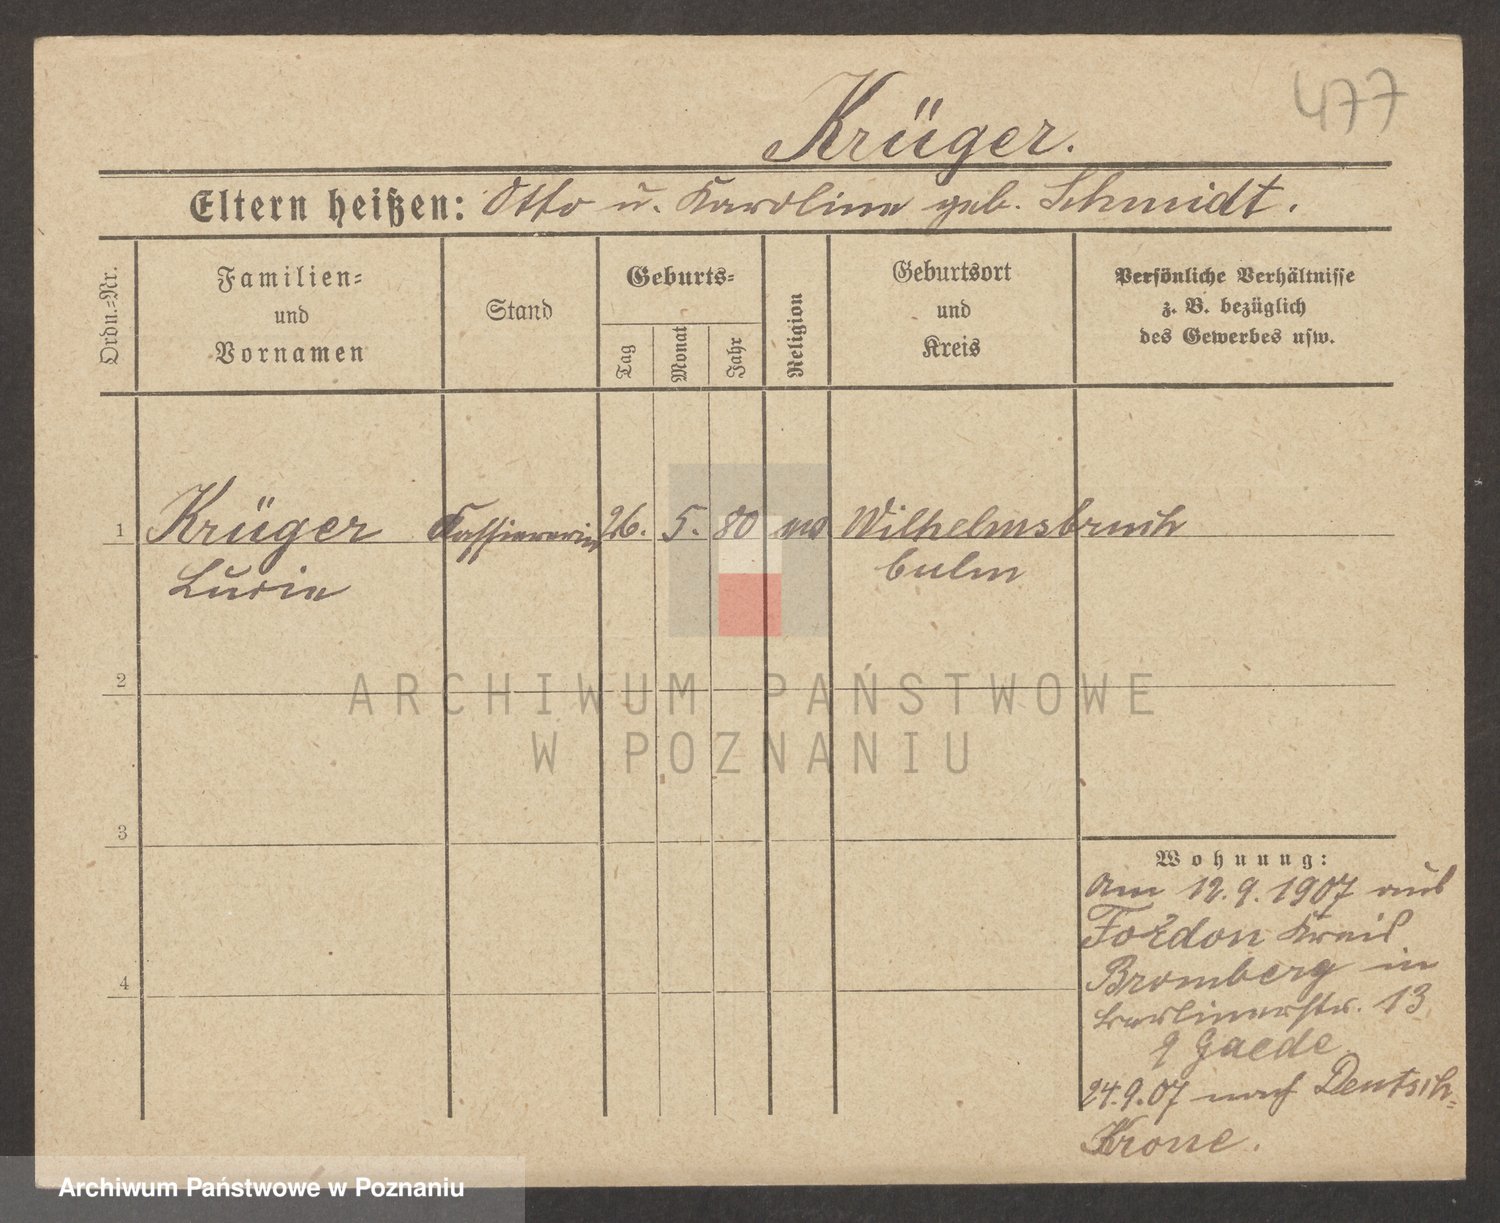 477
Krüger.
Eltern heißen: Otto u. Karoline geb. Schmidt.
Ordn.-Nr.
Familien-
und
Vornamen
Stand
Geburts-
Tag
Monat
Jahr
Religion
Geburtsort
und
Kreis
Persönliche Verhältnisse
z. B. bezüglich
des Gewerbes usw.
1 Krüger Kassiererin 26. 5. 80 ev. Wilhelmsbruch
Lucie Culm
2
ARCHIWUM PAŃSTWOWE
W POZNANIU
3
Wohnung:
Am 12.9.1907 aus
Fordon Kreis
Bromberg in
Berlinerstr. 13
Gaede
4
24.9.07 nach Deutsch-
Krone.
Archiwum Państwowe w Poznaniu